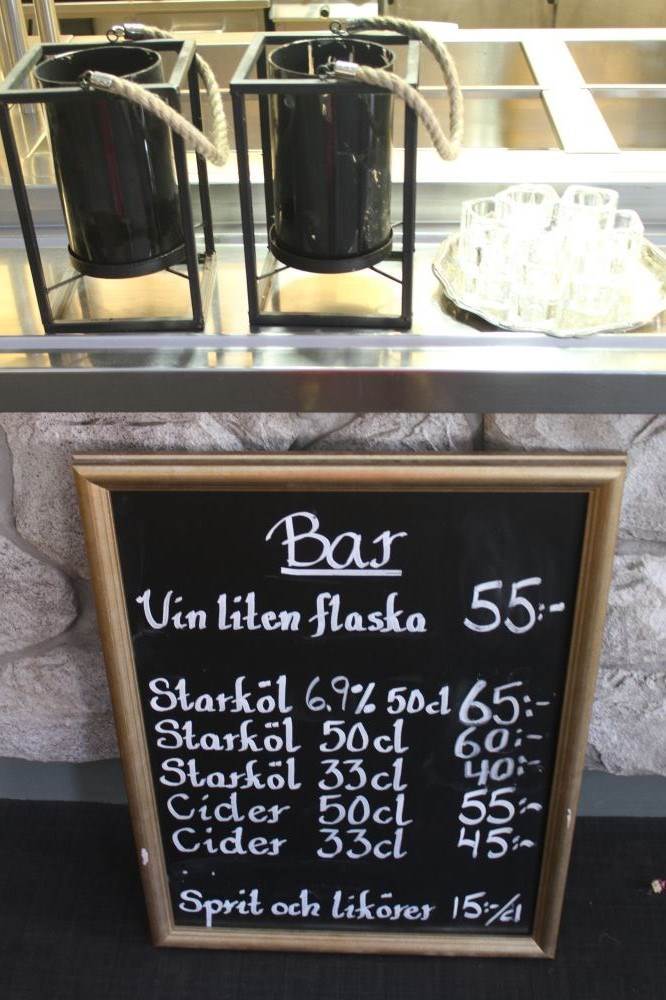 Bar
Vin liten flaska 55:-
Starköl 6,9% 50cl 65:-
Starköl 50cl 60:-
Starköl 33cl 40:-
Cider 50cl 55:-
Cider 33cl 45:-
Sprit och likörer 15:-/cl